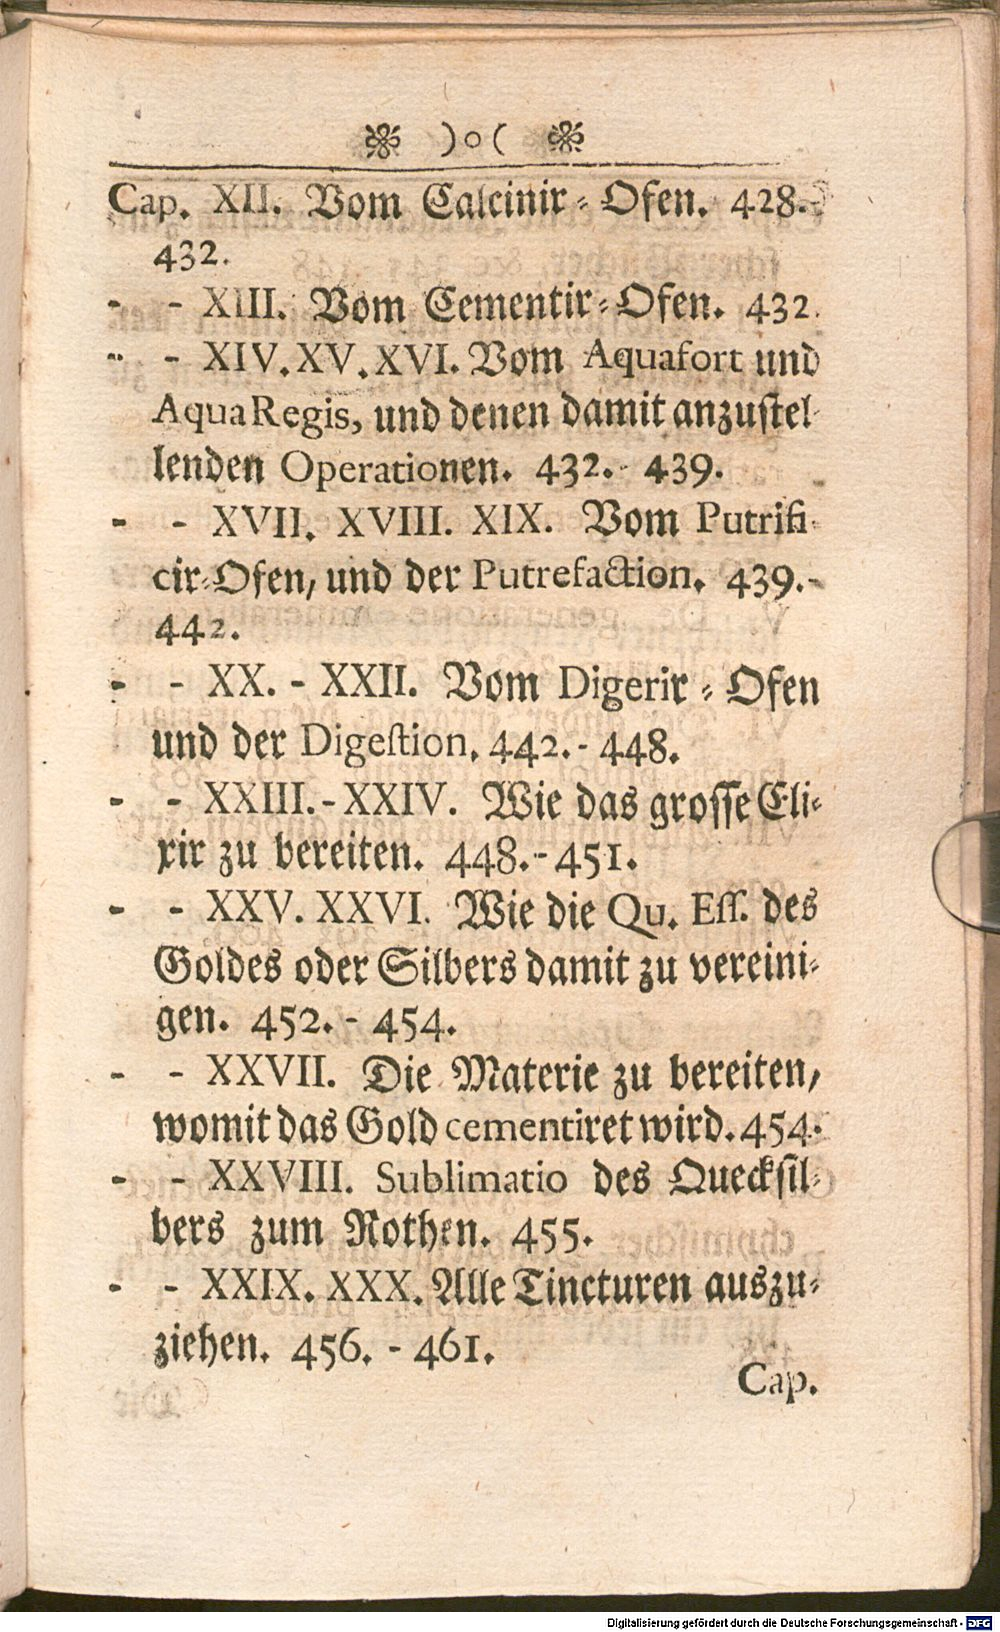 ❀ )o( ❀
Cap. XII. Vom Calcinir-Ofen. 428.-
432.
- - XIII. Vom Cementir-Ofen. 432.
- - XIV. XV. XVI. Vom Aquafort und
Aqua Regis, und denen damit anzustel-
lenden Operationen. 432.- 439.
- - XVII. XVIII. XIX. Vom Putrifi-
cir-Ofen, und der Putrefaction. 439.-
442.
- - XX. - XXII. Vom Digerir-Ofen
und der Digestion. 442.- 448.
- - XXIII.-XXIV. Wie das grosse Eli-
xir zu bereiten. 448.-451.
- - XXV. XXVI. Wie die Qu. Ess. des
Goldes oder Silbers damit zu vereini-
gen. 452. - 454.
- - XXVII. Die Materie zu bereiten,
womit das Gold cementiret wird. 454.
- - XXVIII. Sublimatio des Quecksil-
bers zum Rothen. 455.
- - XXIX. XXX. Alle Tincturen auszu-
ziehen. 456. - 461.
Cap.
Digitalisierung gefördert durch die Deutsche Forschungsgemeinschaft - DFG